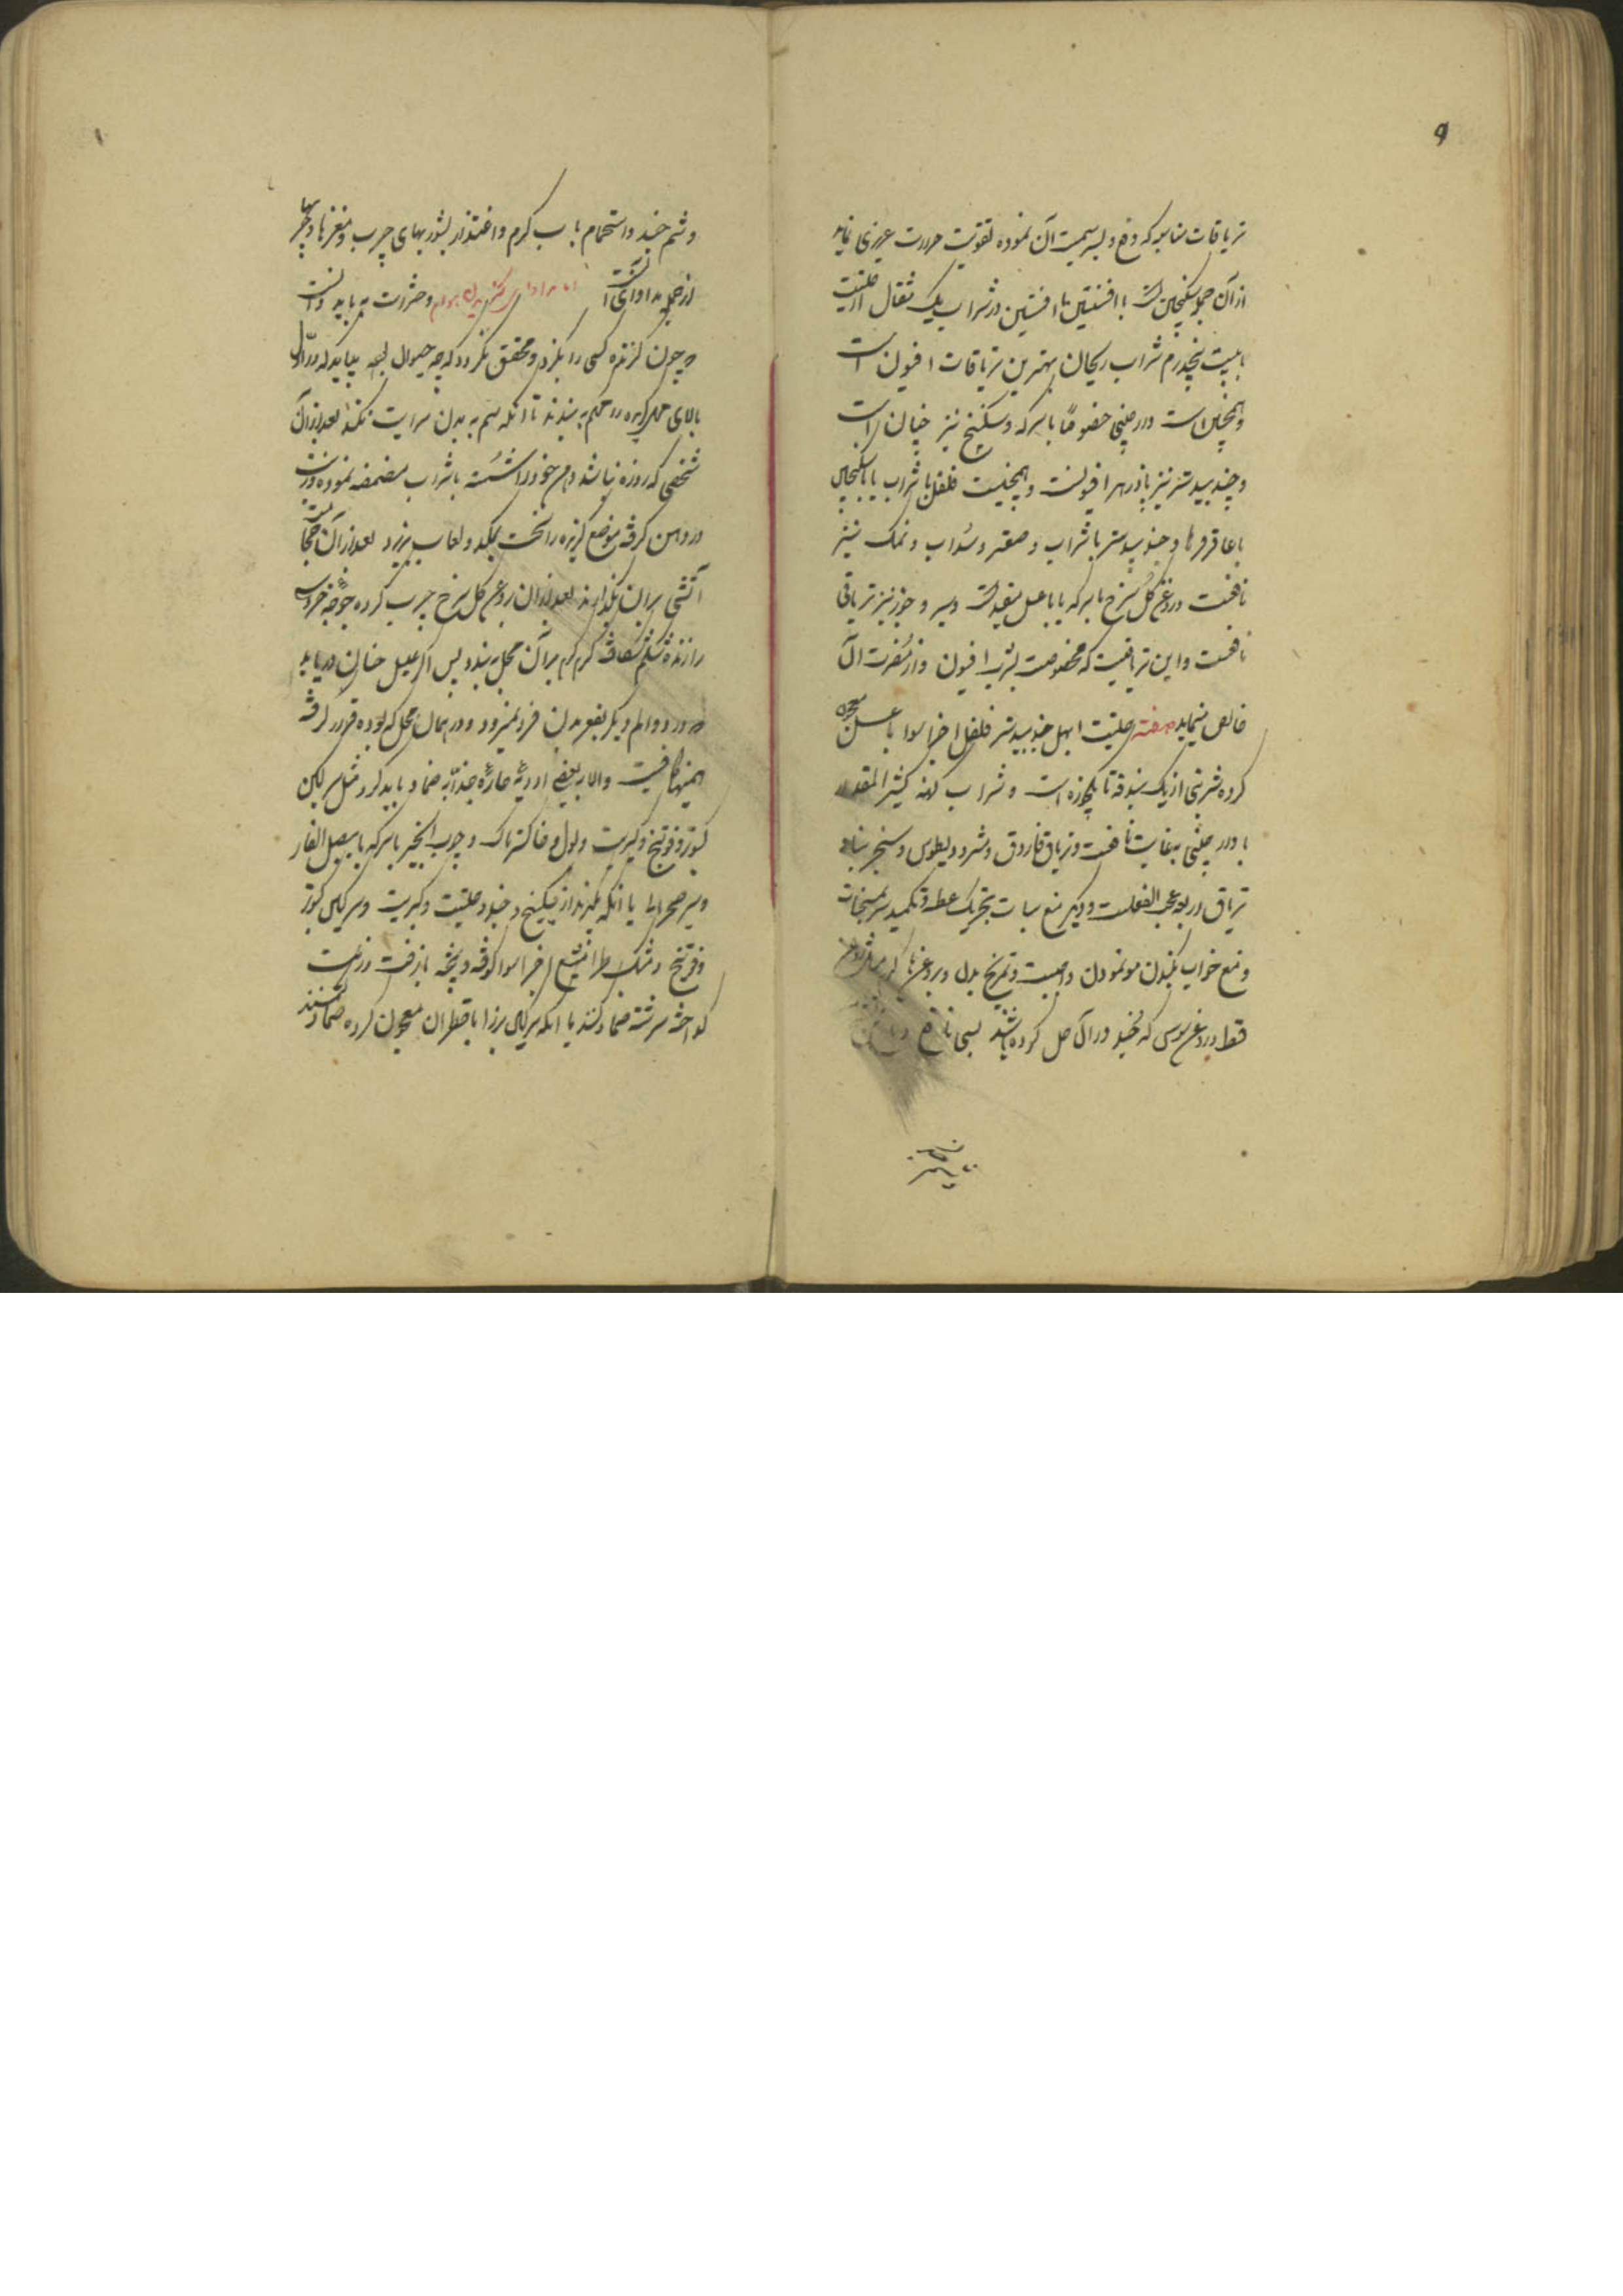 ۹
تریاقات مناسبه که دفع و کسر سمیت آن نموده تقویت حرارت غریزی نماید
از آن جمله سکنجبین است با افسنتین یا افسنتین در شراب یک مثقال از حلتیت
با بیست پنجدرم شراب ریحان بهترین تریاقات افیون است
و همچنین است دارچینی خصوصاً با سرکه و سکنج نیز چنان است
و جندبیدستر نیز پادزهر افیونست و همچنین است فلفل با شراب یا با سکنجبین
با عاقرقرحا و جندبیدستر با شراب و صعتر و سداب و نمک نیز
نافعست و روغن گل سرخ با سرکه یا با عسل مفید است و سیر و جوز نیز تریاقی
نافعست و این تریاقیست که مخصوصست بشرب افیون و از مضرت آن
خالص مینماید صفته حلتیت ابهل جندبیدستر فلفل اجزا سوا با عسل معجون
کرده شربتی از یک بندقه تا یکجوزه است و شراب کهنه کثیر المقدار
با دارچینی بغایت نافعست و تریاق فاروق و مثرودیطوس و سنجرینا و
تریاق اربعه عجب الفعلست و دیگر منع سبات بتحریک عطسه و تکمید سر بمسخنات
و منع خواب بکندن مو نمودن واجبست و تمریخ بدن بروغنها گرم مثل روغن
قسط و روغن سوسن که جند در آن حل کرده باشند بسی نافع
و شم جند و استحمام بآب گرم و اغتذا بشوربهای چرب و مغزها و چربیها
از جمله مداوای آنست
و حشرات به باید دانست
که چون گزنده کسی را بگزد و محقق نگردد که چه حیوان بوده بباید که در اول
بالای محل گزیده را محکم به بندند تا آنکه سم به بدن سرایت نکند بعد از آن
شخصی که روزه نباشد دهن خود را شسته با شراب مضمضه نموده و زیت
در دهن گرفته موضع گزیده را سخت بمکد و لعاب بریزد بعد از آن حجامت
آتشی بر آن بگذارند بعد از آن بروغن گل سرخ چرب کرده جوجه خروسه
را زنده شکم شکافته گرم گرم بر آن محل به بندد پس اگر علیل چنان دریابد
که درد و الم دیگر بقعر بدن فرو نمیرود و در همان محل که بوده قرار گرفته
همینها کافیست والا به بعضی ادویهٔ حارهٔ جذابه ضماد باید کرد مثل سرگین
کبوتر و فوتنج و کبریت و بول و خاکستر تاک و چوب انجیر با سرکه یا بصل الفار
و سیر صحرائی یا آنکه بگیرند از سکبینج و جند و حلتیت و کبریت و سرگین کبوتر
و فوتنج و مشکطرامشیع اجزا سوا کوفته و بیخته با زفت و زیت
گداخته سرشته ضماد کنند یا آنکه سرگین بز را با قطران معجون کرده ضماد کنند